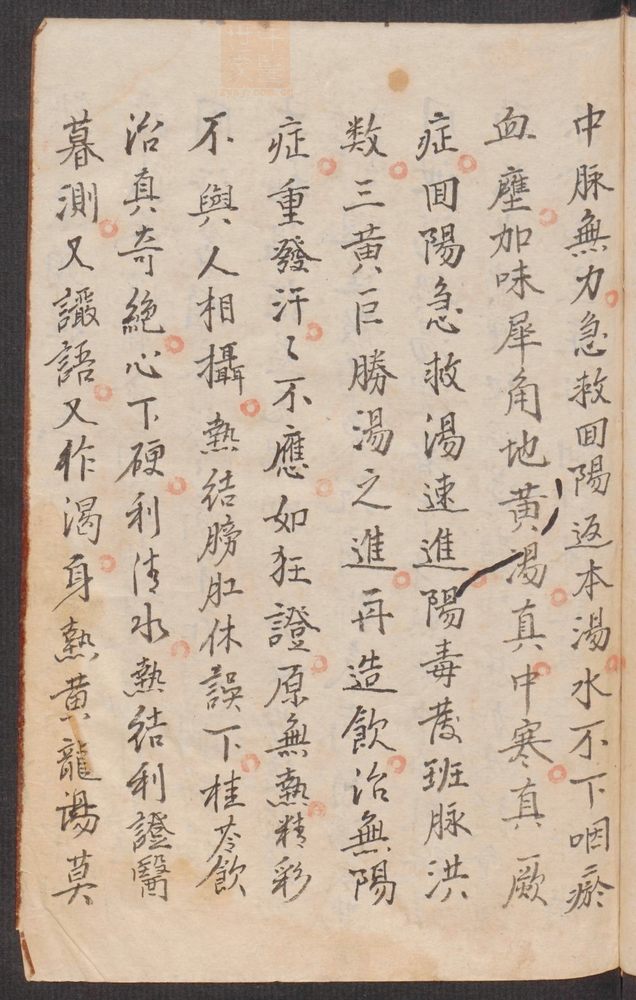 中脉無力急救回陽返本湯水不下咽瘀
血壅加味犀角地黄湯真中寒真厥
症回陽急救湯速進陽毒發班脉洪
数三黄巨勝湯之進再造飲治無陽
症重發汗〻不應如狂證原無熱精彩
不與人相攝熱结膀肛休誤下桂苓飲
治真奇絶心下硬利清水熱结利證醫
暮測又讝語又作渴身熱黄龍湯莫